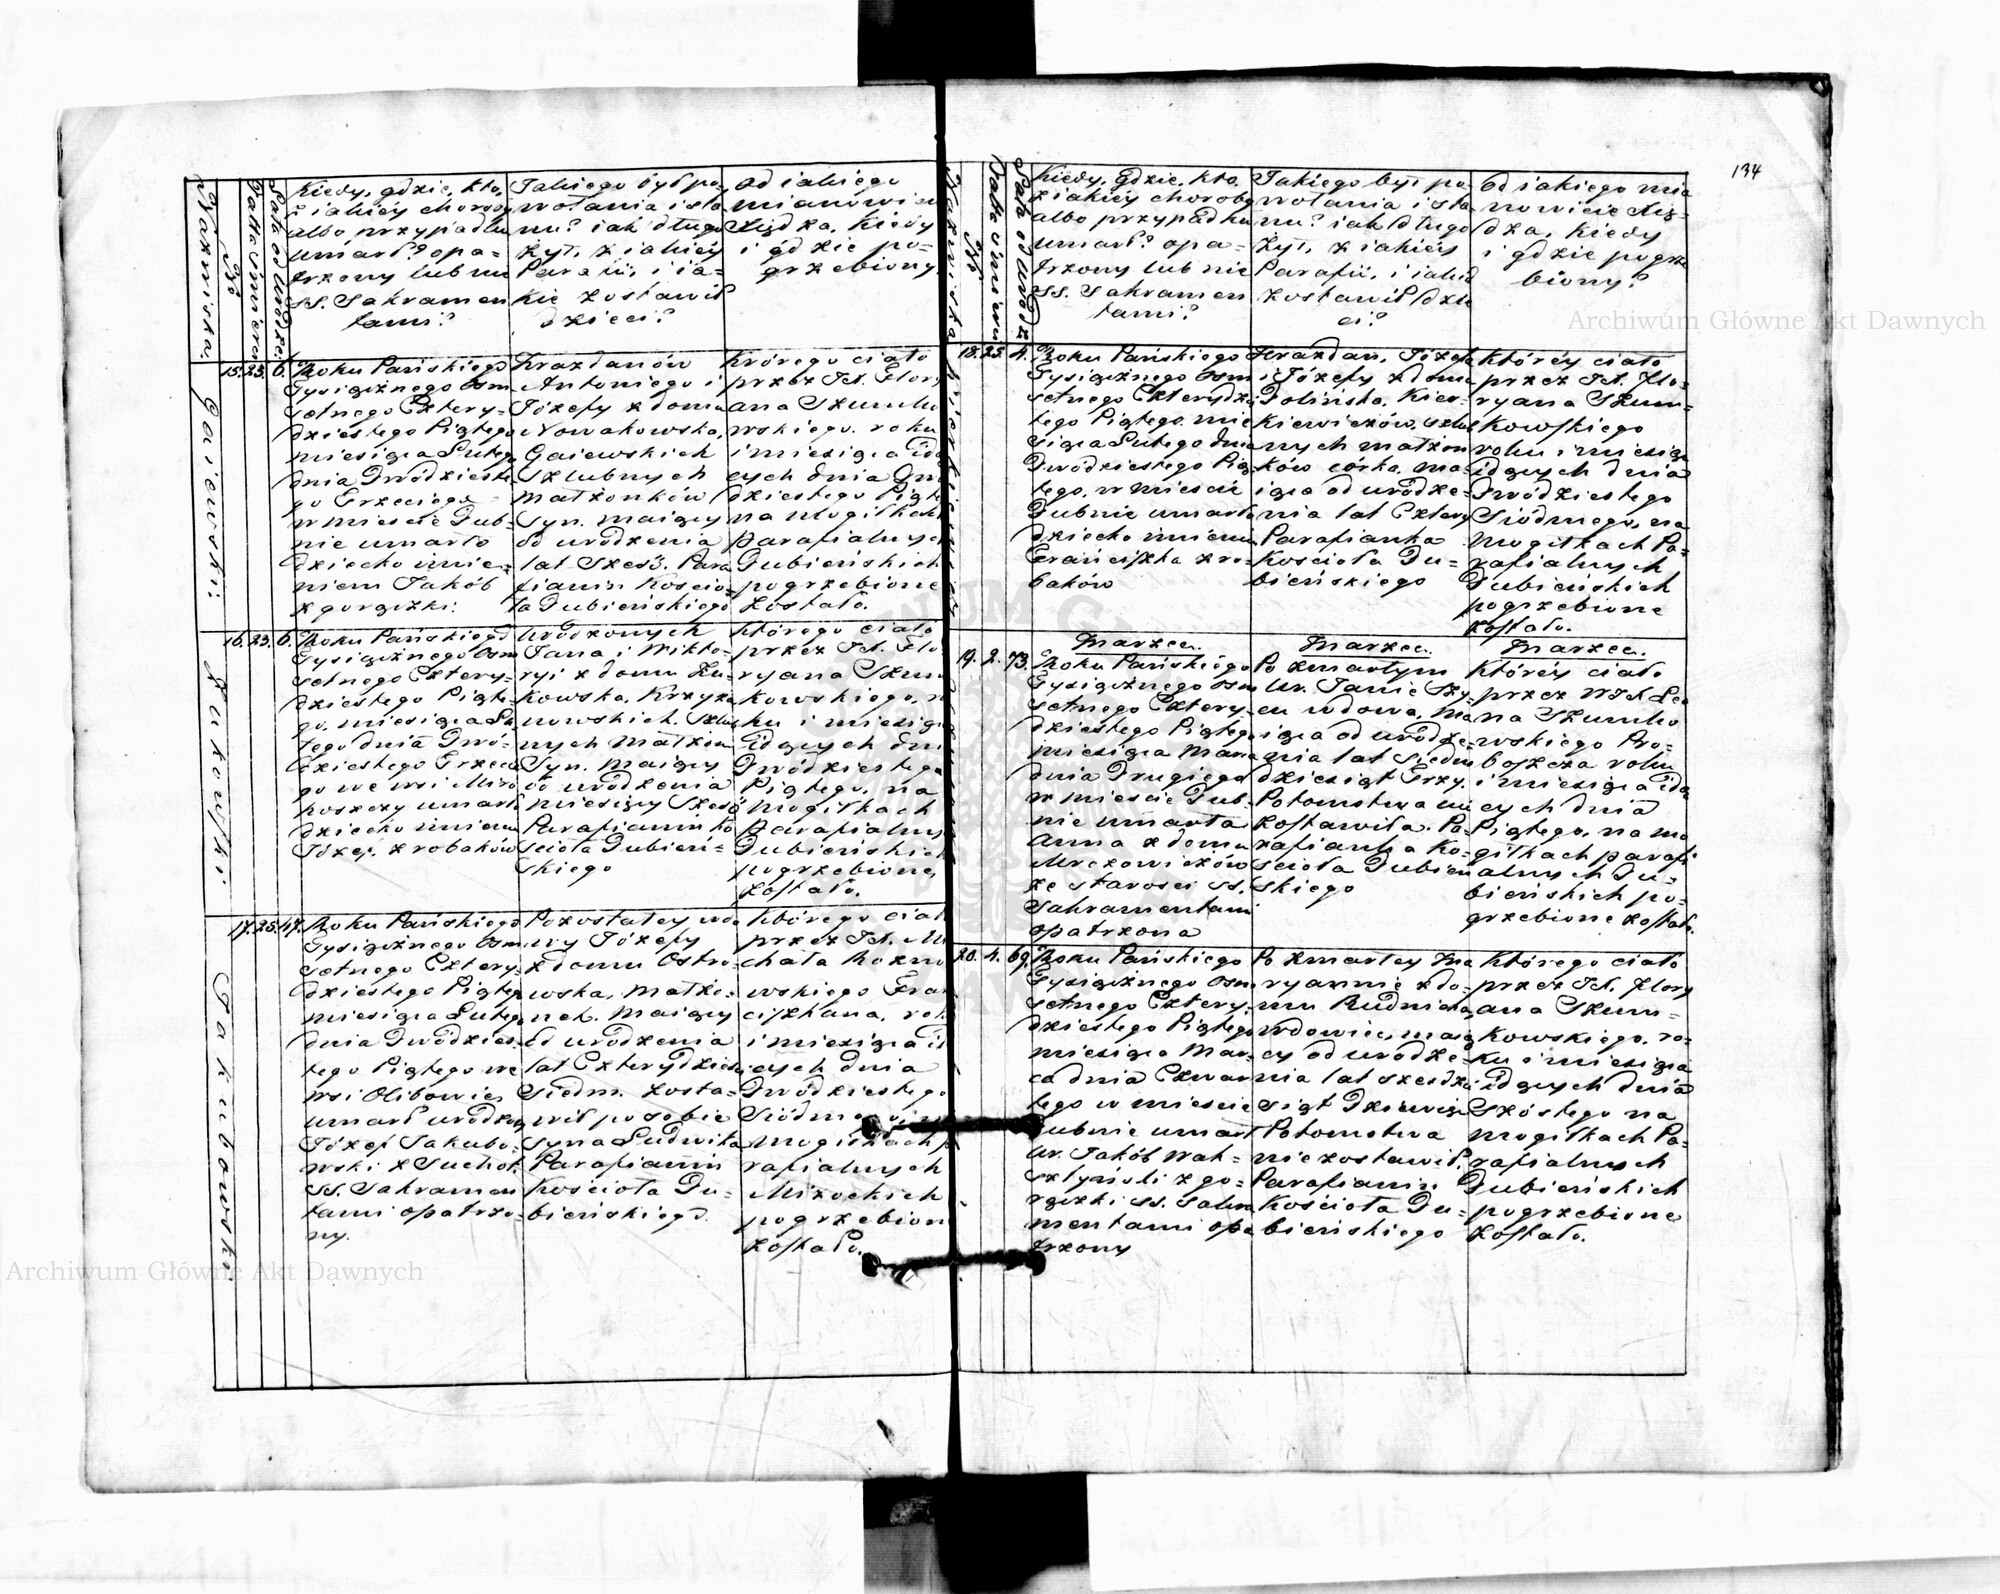 134
Archiwum Główne Akt Dawnych
Nazwiska.
No
Datta Umerci
Lata od Urodze:
Kiedy, gdzie, kto,
i iakiey choroby
albo przypadku
umarł? opa=
trzony lub nie
SS. Sakramen
tami?
Jakiego był po
wołania i sta
nu? iak długo
żył, z iakiey
Parafii, i ia=
kie zostawił
dzieci?
Od iakiego
mianowicie
Xiędza, Kiedy
i gdzie po=
grzebiony
15. 23. 6.
Gaiewski:
Roku Pańskiego
Tysiącznego Osm
setnego Cztery=
dziestego Piątego
miesiąca Lutego
dnia Dwódzieste
go Trzeciego
w mieście Dub=
nie umarło
dziecko imie=
niem Jakób
z gorączki:
Grażdanów
Antoniego i
Józefy z domu
Nowakowska,
Gaiewskich
Szlubnych
małżonków
Syn. maiący
od urodzenia
lat Sześć. Para
fianin Koscio=
ła Dubieńskiego
Którego ciało
przez JX. Flory
ana Szumko
wskiego. roku
i miesiąca idą
cych dnia Dwó
dziestego Piąte
na mogiłkach
parafialnych
Dubieńskich
pogrzebione
zostało.
16. 23. 6.
Roku Pańskiego
Tysiącznego Osm
setnego Cztery=
dziestego Piąte=
go. miesiąca Lu
tego dnia Dwó=
dziestego Trzecie
go we wsi Miro
hoszczy umarło
dziecko imieniem
Józef. z robaków
Urodzonych
Jana i Wikto=
ryi z domu Żu=
kowska, Krzyża
nowskich. Szlub
nych Małżon
Syn. maiący
od urodzenia
miesięcy Sześć
Parafianin Ko
scioła Dubień=
skiego
Którego ciało
przez JX. Flo
ryana Szum
kowskiego. ro
ku i miesiąca
idących dnia
Dwódziestego
Piątego, na
mogiłkach
parafialnych
Dubieńskich
pogrzebione
zostało.
17. 25. 47.
Jakubowski
Roku Pańskiego
Tysiącznego Osm
setnego Cztery=
dziestego Piątego
miesiąca Lutego
dnia Dwódzies=
tego Piątego we
wsi Olibowie
umarł urodzony
Józef Jakubo=
wski z Suchot
SS. Sakramen
tami opatrzo=
ny.
Pozostałey wdo
wy Józefy
z domu Ostro=
wska, Małżo=
nek. Maiący
od urodzenia
lat Czterydzieści
Siedm. zosta=
wił po sobie
syna Ludwika
Parafianin
Kościoła Du=
bieńskiego.
Którego ciało
przez JX. Mi
chała Rozno
wskiego Fran
ciszkana, roku
i miesiąca id
ących dnia
Dwódziestego
Siódmego na
mogiłkach pa
rafialnych
Mizockich
pogrzebione
zostało.
Nazwiska
No
Data Umerci
Lata od Urodz
Kiedy, gdzie, kto.
z iakiey choroby
albo przypadku
umarł? opa=
trzony lub nie
SS. Sakramen
tami?
Jakiego był po
wołania i sta
nu? iak długo
żył, z iakiey
Parafii, i iakie
zostawił dzie
ci?
Od iakiego mia
nowicie Xię=
dza, Kiedy
i gdzie pogrze
biony?
18. 25. 4.
Roku Pańskiego
Tysiącznego Osm
setnego Czterydzie
tego Piątego mie
siąca Lutego dnia
Dwódziestego Pią
tego, w mieście
Dubnie umarło
dziecko imieniem
Franciszka z ro=
baków
Grażdan. Józefa
i Józefy z domu
Dolińska, Kier=
kiewiczów, szlub
nych małżon
ków córka, ma=
iąca od urodze=
nia lat Cztery
Parafianka
Kościoła Du=
bieńskiego
Którey ciało
przez JX. Flo=
ryana Szum=
kowskiego
roku i miesiąca
idących dnia
Dwódziestego
Siódmego, na
Mogiłkach Pa=
rafialnych
Dubieńskich
pogrzebione
zostało.
Marzec.
Marzec.
Marzec.
19. 2. 73.
Roku Pańskiego
Tysiącznego Osm
setnego Cztery=
dziestego Piątego
miesiąca Marca
dnia Drugiego
w mieście Dub=
nie umarła
Anna z domu
Mrozowiczów
ze starosci SS.
Sakramentami
opatrzona
Po zmarłym
Ur. Janie Szy=
cu wdowa, Ma
iąca od urodze=
nia lat Siedm
dziesiąt Trzy.
Potomstwa nie
zostawiła. Pa=
rafianka Ko=
scioła Dubien
skiego
Którey ciało
przez WJX Leo
na Szumko
wskiego Pro=
boszcza roku
i miesiąca idą
cych dnia
Piątego, na mo
giłkach parafi
alnych Du=
bieńskich po=
grzebione zostało.
20. 4. 69.
Roku Pańskiego
Tysiącznego Osm
setnego Cztery=
dziestego Piątego
miesiąca Mar=
ca dnia Czwar
tego w mieście
Dubnie umarł
Ur. Jakób Wah=
sztyński z go=
rączki SS. Sakra
mentami opa
trzony
Po zmarłey Ma
ryannie z do=
mu Rudnicka,
wdowiec, maią
cy od urodze=
nia lat Szesdzie
siąt Dziewięć
Potomstwa
nie zostawił,
Parafianin
Kościoła Du=
bieńskiego
Którego ciało
przez JX. Flory
ana Szum=
kowskiego, ro=
ku i miesiąca
idących dnia
Szóstego na
mogiłkach Pa=
rafialnych
Dubieńskich
pogrzebione
zostało.
Archiwum Główne Akt Dawnych